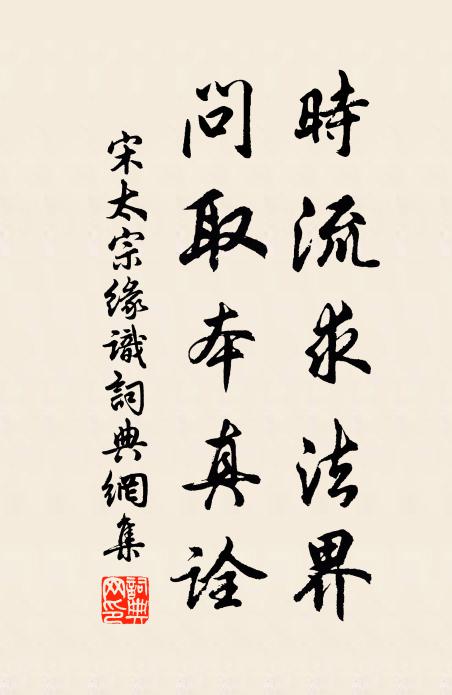 時流求法界
問取本真詮
宋太宗緣識詞典網集
詞典網印